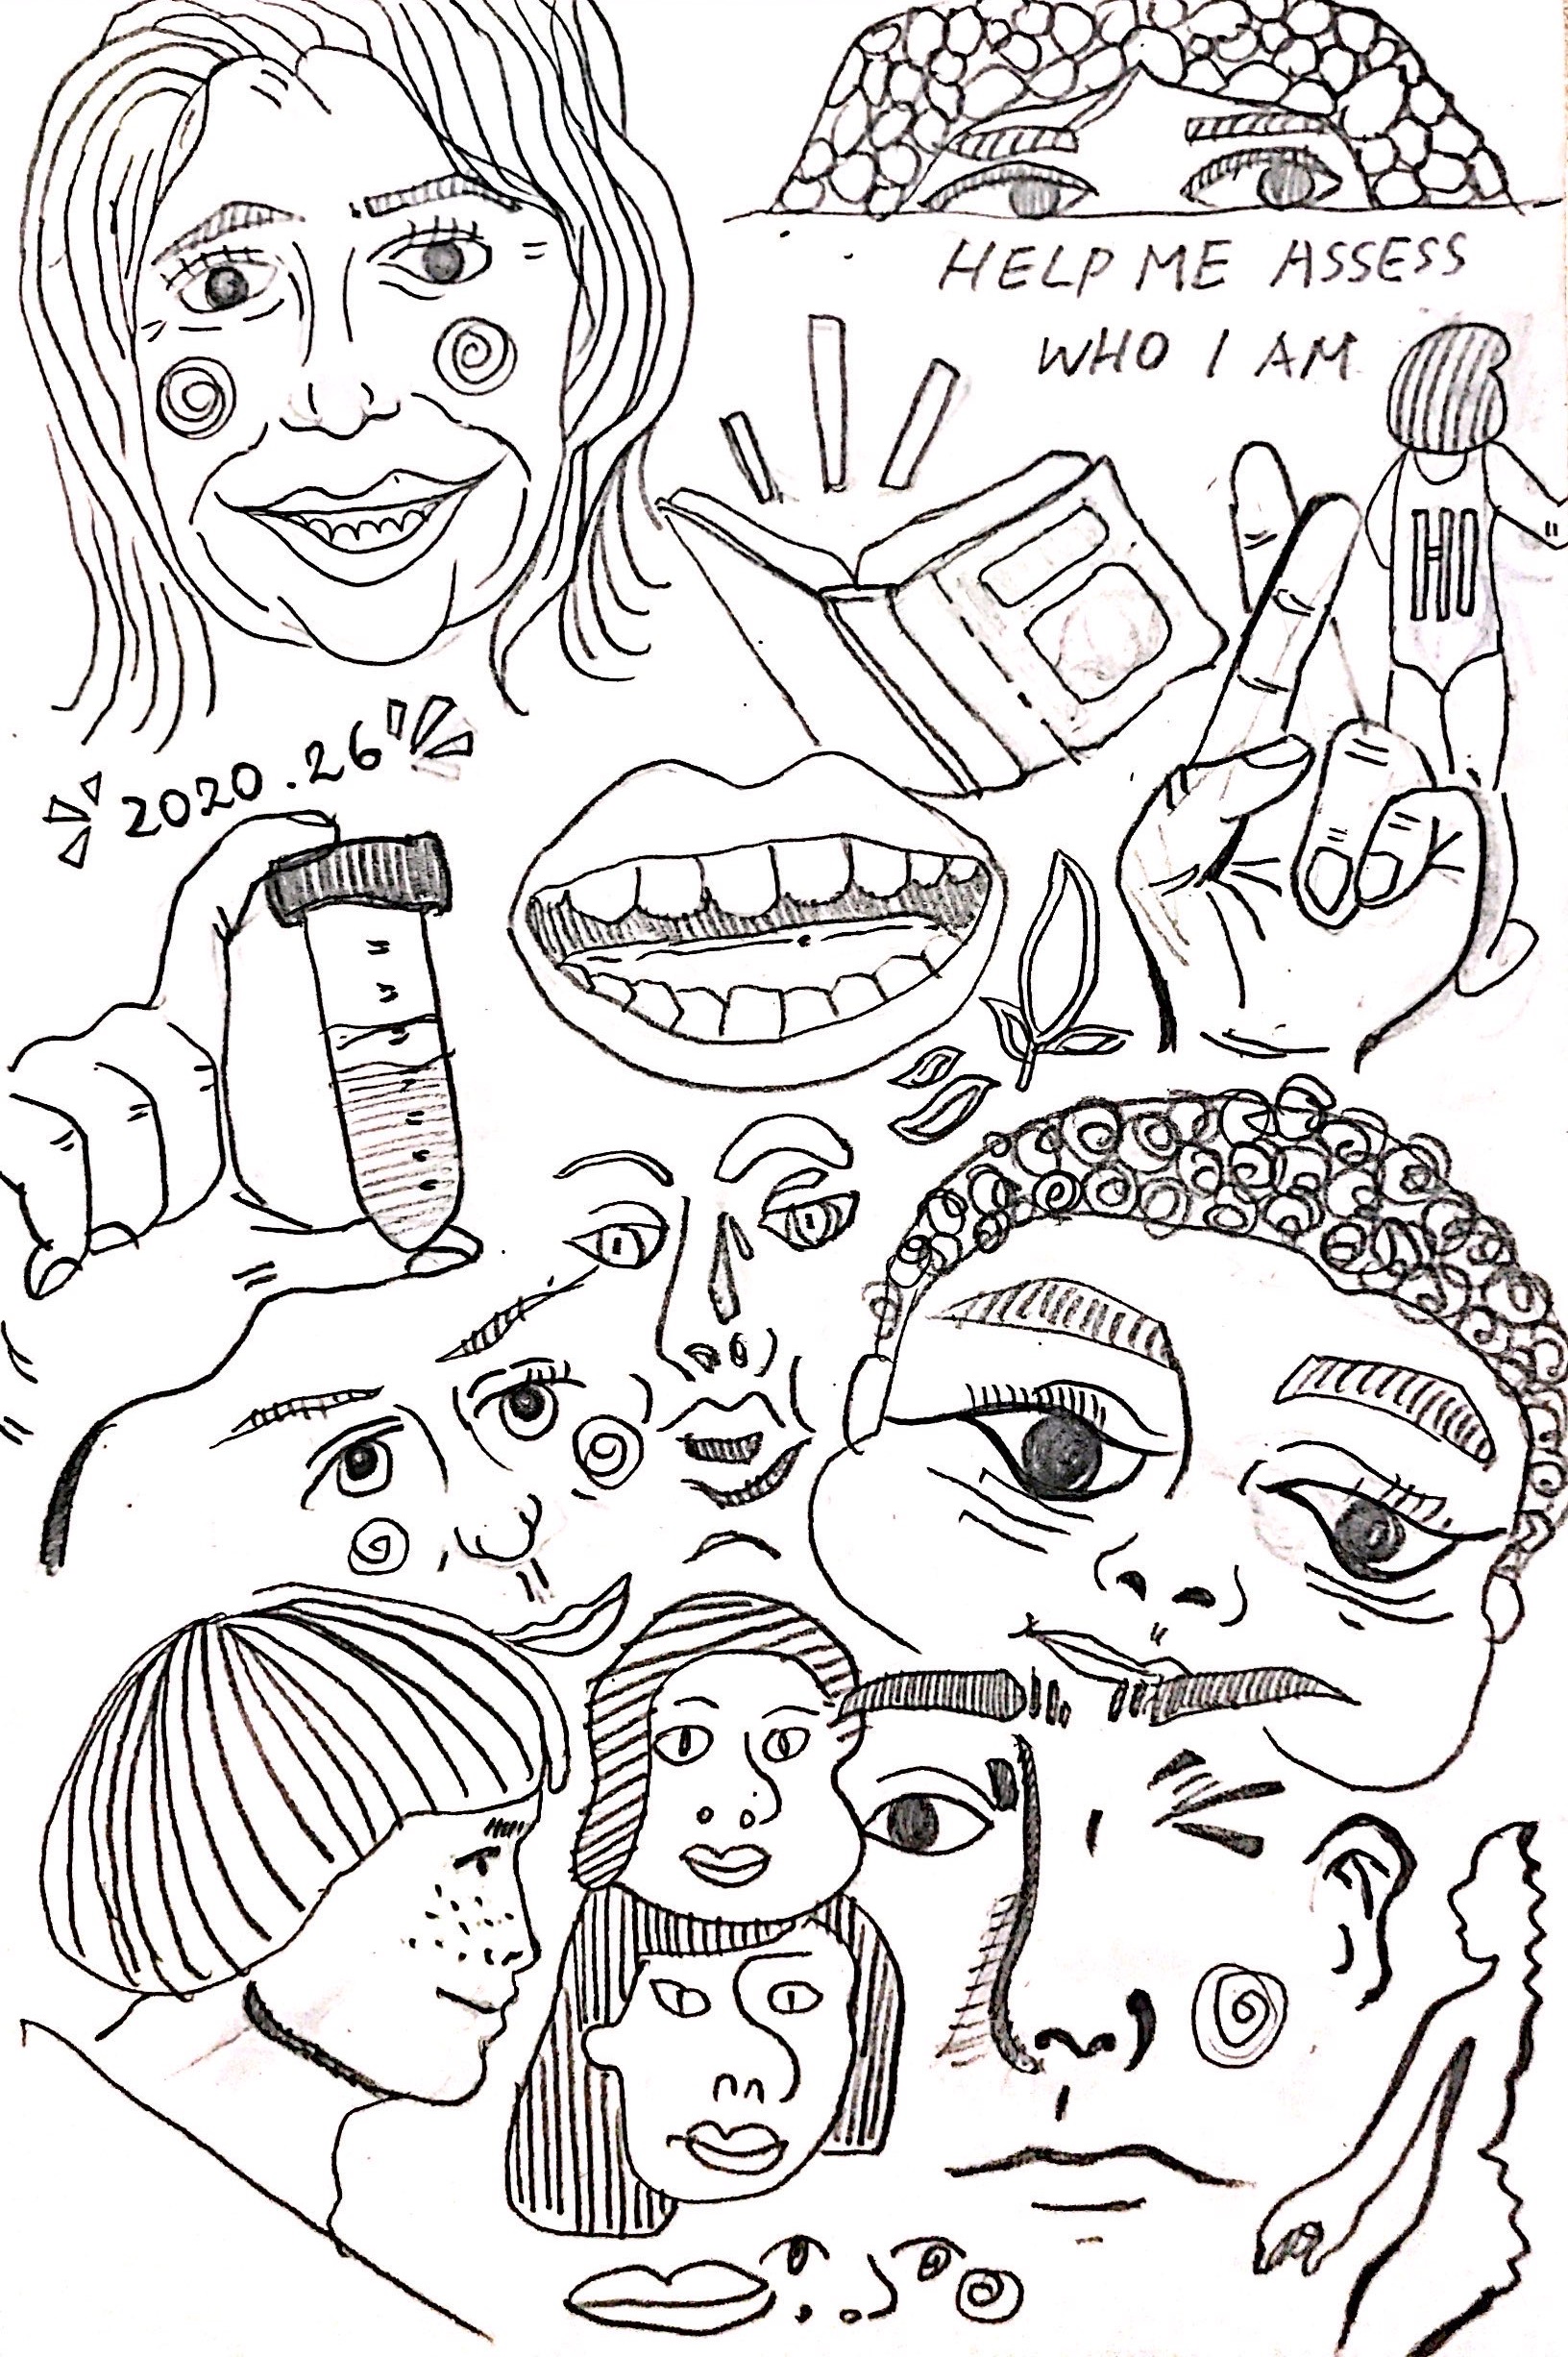 HELP ME ASSESS
WHO I AM
HI
2020.26